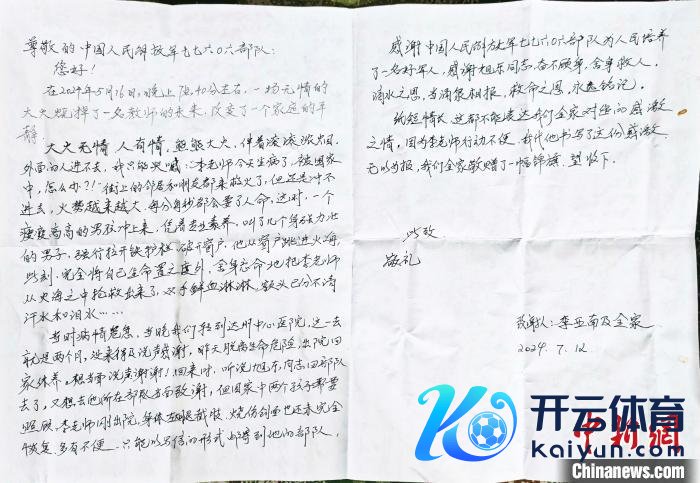 尊敬的中国人民解放军七七六〇六部队:
您好!
在2024年5月16日,晚上 40分左右,一场无情的
大火 掉了一名教师的未来,改变了一个家庭的平
静
大火无情 人有情,熊熊大火,伴着滚滚浓出,
外面的人进不去,我只能哭喊:李老师今天生病了,该困家
中,怎么办?!街上的邻居和朋友都来救火了,但还是冲不
进去,火势越来越大,每分每秒都会要了人命,这时,一个
瘦瘦高高的男孩冲上来,凭着专业素养,叫了几个身强力壮
的男子,强行拉开铁护栏 破开窗户,他从窗户跳进火海,
此刻,完全将自己生命置之度外,舍身忘命地把李老师
从火海之中抢救出来了,双手鲜血淋淋,额头已分不清
汗水和泪水……
当时病情危急,当晚我们转到达州中心医院,这一去
就是两个月,没来得及说声感谢,昨天脱离生命危险,出院回
家休养。想当面说声谢谢!回来时,听说旭东同志回部队
去了,又想去他所在部队当面致谢,但因家中两个孩子都要
照顾,李老师刚出院,身体 截肢,烧伤创面也还未完全
恢复,多有不便。只能以写信的形式 到他的部队,
感谢中国人民解放军七七六〇六部队为人民培养
了一名好军人,感谢旭东同志,奋不顾身,舍身救人,
滴水之恩,当涌泉相报,救命之恩,永远铭记。
纸短情长,这都不能表达我们全家对您的感激
之情,因为李老师行动不便,我代他书写了这份感激
无以为报,我们全家敬赠了一幅锦旗,望收下。
此致
敬礼
致谢人:李亚南及全家
2024.7.12
开云体育
Kaiyun.com
中新网
Chinanews.com